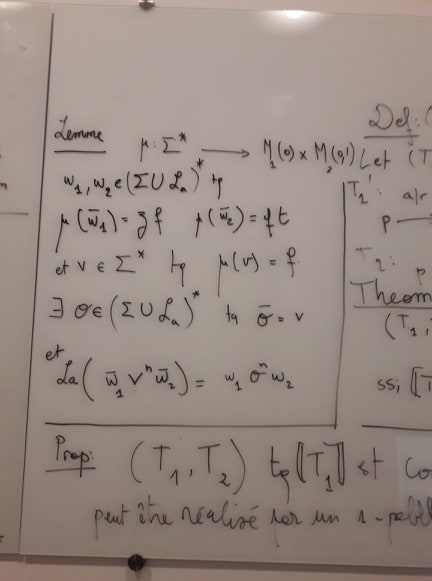 Lemme
μ: Σ* → M₁(Q) × M₂(Q')
w₁, w₂ ∈ (Σ ∪ La)* tq
μ(w̄₁) = zf μ(w̄₂) = ft
et v ∈ Σ* tq μ(v) = f
∃ σ ∈ (Σ ∪ La)* tq σ̄ = v
et
La( w̄₁ vⁿ w̄₂ ) = w₁ σⁿ w₂
Def:
Let (T
T₁':
p →
T₂: p
Theorem
(T₁,
ssi ⟦T
Prop: (T₁, T₂) tq ⟦T₁⟧ est
peut être réalisé par un 1-